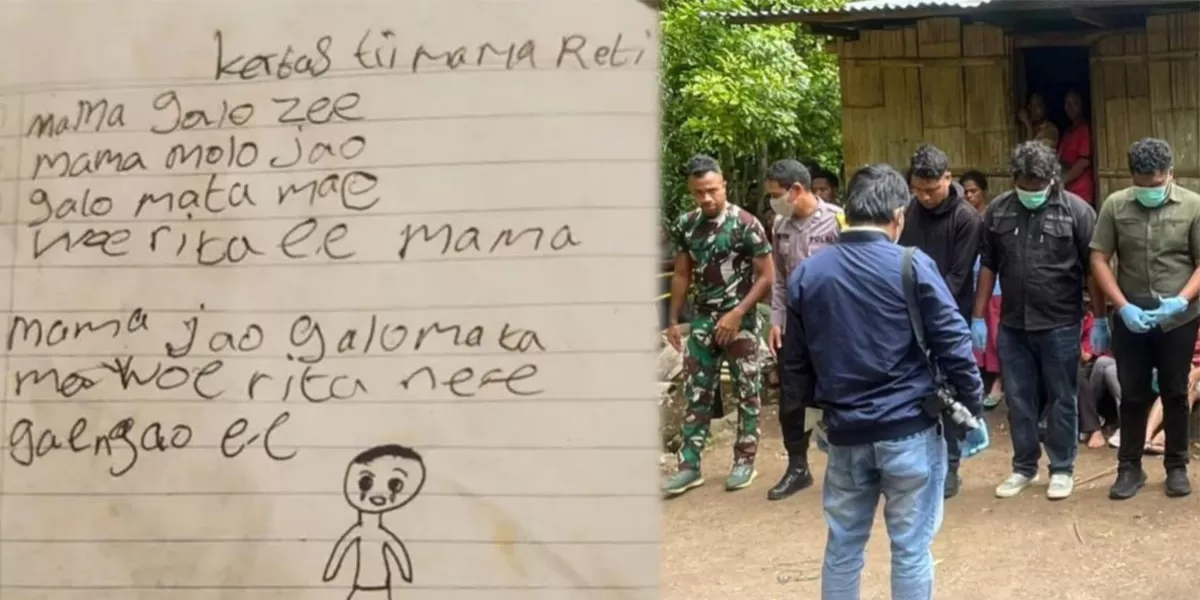 kertas tii mama Reti
mama galo zee
mama molo jao
galo mata mae
woe rita ee mama
mama jao galo mata
mae woe rita ne e e
galngao ee
POLISI